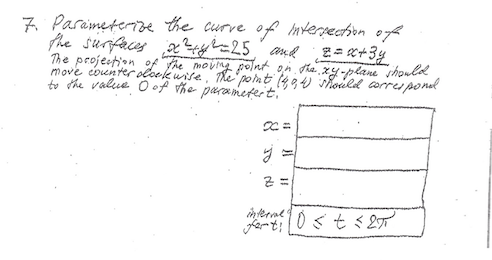 7. Parameterize the curve of intersection of
the surfaces x²+y²=25 and z=x+3y
The projection of the moving point on the xy-plane should
move counterclockwise. The point should correspond
to the value 0 of the parameter t.
x =
y =
z =
interval
for t: 0 ≤ t ≤ 2π